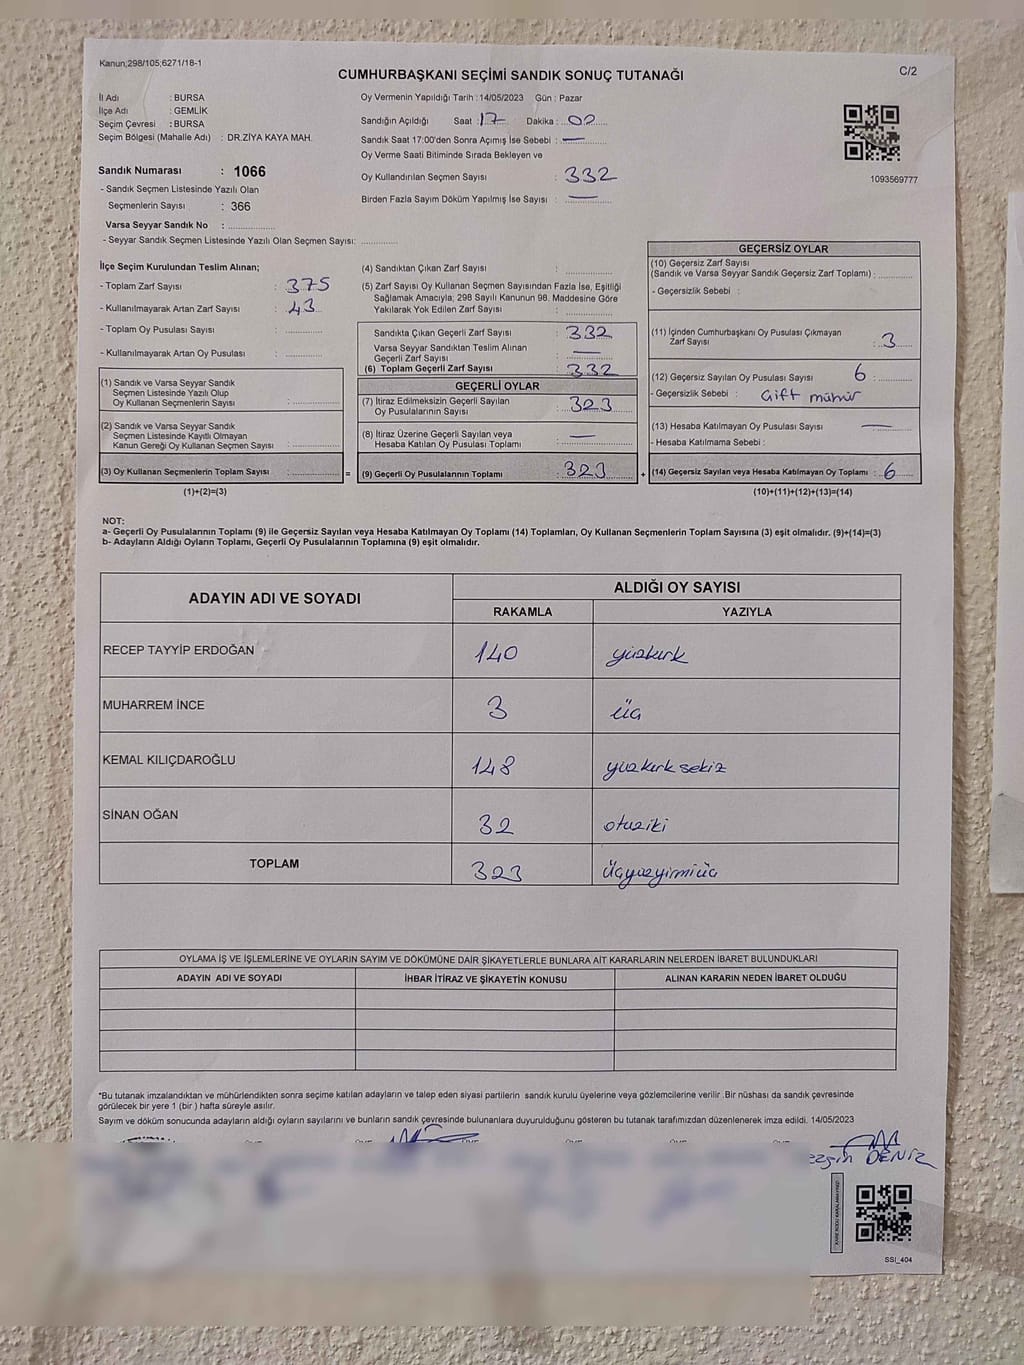 Kanun;298/105;6271/18-1
CUMHURBAŞKANI SEÇİMİ SANDIK SONUÇ TUTANAĞI
C/2
İl Adı : BURSA
İlçe Adı : GEMLİK
Seçim Çevresi : BURSA
Seçim Bölgesi (Mahalle Adı) : DR.ZİYA KAYA MAH.
Sandık Numarası : 1066
- Sandık Seçmen Listesinde Yazılı Olan
Seçmenlerin Sayısı : 366
Varsa Seyyar Sandık No : ................
- Seyyar Sandık Seçmen Listesinde Yazılı Olan Seçmen Sayısı: .............
Oy Vermenin Yapıldığı Tarih : 14/05/2023 Gün : Pazar
Sandığın Açıldığı Saat : 17 Dakika : 00
Sandık Saat 17:00'den Sonra Açımış İse Sebebi : —
Oy Verme Saati Bitiminde Sırada Bekleyen ve
Oy Kullandırılan Seçmen Sayısı : 332
Birden Fazla Sayım Döküm Yapılmış İse Sayısı : —
1093569777
İlçe Seçim Kurulundan Teslim Alınan;
- Toplam Zarf Sayısı : 375
- Kullanılmayarak Artan Zarf Sayısı : 43
- Toplam Oy Pusulası Sayısı : .............
- Kullanılmayarak Artan Oy Pusulası : .............
(1) Sandık ve Varsa Seyyar Sandık
Seçmen Listesinde Yazılı Olup
Oy Kullanan Seçmenlerin Sayısı : .............
(2) Sandık ve Varsa Seyyar Sandık
Seçmen Listesinde Kayıtlı Olmayan
Kanun Gereği Oy Kullanan Seçmen Sayısı : .............
(3) Oy Kullanan Seçmenlerin Toplam Sayısı : ............. =
(1)+(2)=(3)
(4) Sandıktan Çıkan Zarf Sayısı : .............
(5) Zarf Sayısı Oy Kullanan Seçmen Sayısından Fazla İse, Eşitliği
Sağlamak Amacıyla; 298 Sayılı Kanunun 98. Maddesine Göre
Yakılarak Yok Edilen Zarf Sayısı : .............
Sandıkta Çıkan Geçerli Zarf Sayısı : 332
Varsa Seyyar Sandıktan Teslim Alınan
Geçerli Zarf Sayısı : —
(6) Toplam Geçerli Zarf Sayısı : 332
GEÇERLİ OYLAR
(7) İtiraz Edilmeksizin Geçerli Sayılan
Oy Pusulalarının Sayısı : 323
(8) İtiraz Üzerine Geçerli Sayılan veya
Hesaba Katılan Oy Pusulası Toplamı : —
(9) Geçerli Oy Pusulalarının Toplamı : 323 +
GEÇERSİZ OYLAR
(10) Geçersiz Zarf Sayısı
(Sandık ve Varsa Seyyar Sandık Geçersiz Zarf Toplamı) : .............
- Geçersizlik Sebebi :
(11) İçinden Cumhurbaşkanı Oy Pusulası Çıkmayan
Zarf Sayısı : 3
(12) Geçersiz Sayılan Oy Pusulası Sayısı 6 : .............
- Geçersizlik Sebebi : Çift mühür
(13) Hesaba Katılmayan Oy Pusulası Sayısı —
- Hesaba Katılmama Sebebi :
(14) Geçersiz Sayılan veya Hesaba Katılmayan Oy Toplamı : 6
(10)+(11)+(12)+(13)=(14)
NOT:
a- Geçerli Oy Pusulalarının Toplamı (9) ile Geçersiz Sayılan veya Hesaba Katılmayan Oy Toplamı (14) Toplamları, Oy Kullanan Seçmenlerin Toplam Sayısına (3) eşit olmalıdır. (9)+(14)=(3)
b- Adayların Aldığı Oyların Toplamı, Geçerli Oy Pusulalarının Toplamına (9) eşit olmalıdır.
ADAYIN ADI VE SOYADI
ALDIĞI OY SAYISI
RAKAMLA YAZIYLA
RECEP TAYYİP ERDOĞAN 140 yüzkırk
MUHARREM İNCE 3 üç
KEMAL KILIÇDAROĞLU 148 yüzkırk sekiz
SİNAN OĞAN 32 otuziki
TOPLAM 323 Üçyüzyirmiüç
OYLAMA İŞ VE İŞLEMLERİNE VE OYLARIN SAYIM VE DÖKÜMÜNE DAİR ŞİKAYETLERLE BUNLARA AİT KARARLARIN NELERDEN İBARET BULUNDUKLARI
ADAYIN ADI VE SOYADI İHBAR İTİRAZ VE ŞİKAYETİN KONUSU ALINAN KARARIN NEDEN İBARET OLDUĞU
*Bu tutanak imzalandıktan ve mühürlendikten sonra seçime katılan adayların ve talep eden siyasi partilerin sandık kurulu üyelerine veya gözlemcilerine verilir .Bir nüshası da sandık çevresinde
görülecek bir yere 1 (bir ) hafta süreyle asılır.
Sayım ve döküm sonucunda adayların aldığı oyların sayılarını ve bunların sandık çevresinde bulunanlara duyurulduğunu gösteren bu tutanak tarafımızdan düzenlenerek imza edildi. 14/05/2023
DENİZ
SSI_404